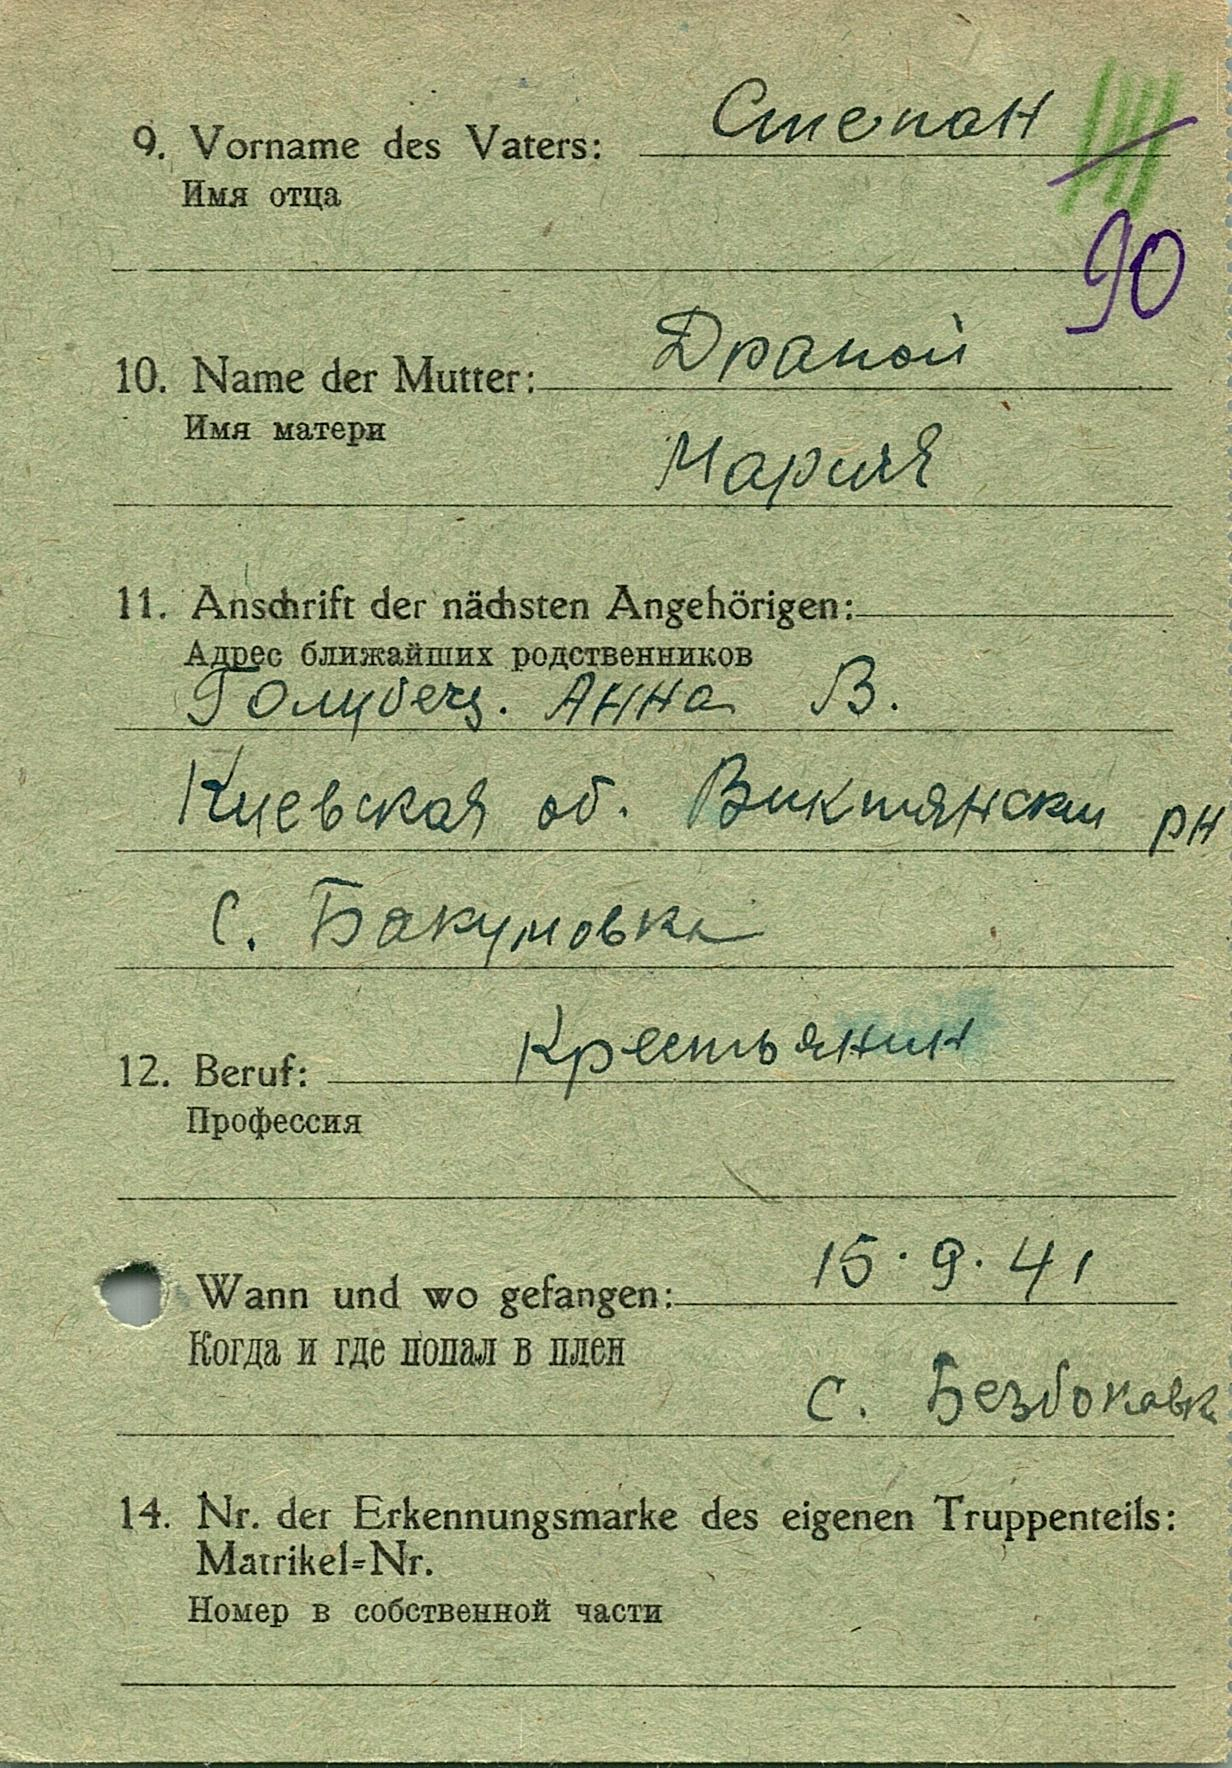 9. Vorname des Vaters: Степан
Имя отца
90
10. Name der Mutter: Драной
Имя матери
Мария
11. Anschrift der nächsten Angehörigen:
Адрес ближайших родственников
Голубец. Анна В.
Киевская об. Виктянский рн
с. Бакумовка
12. Beruf: Крестьянин
Профессия
Wann und wo gefangen: 15.9.41
Когда и где попал в плен
с.
14. Nr. der Erkennungsmarke des eigenen Truppenteils:
Matrikel-Nr.
Номер в собственной части